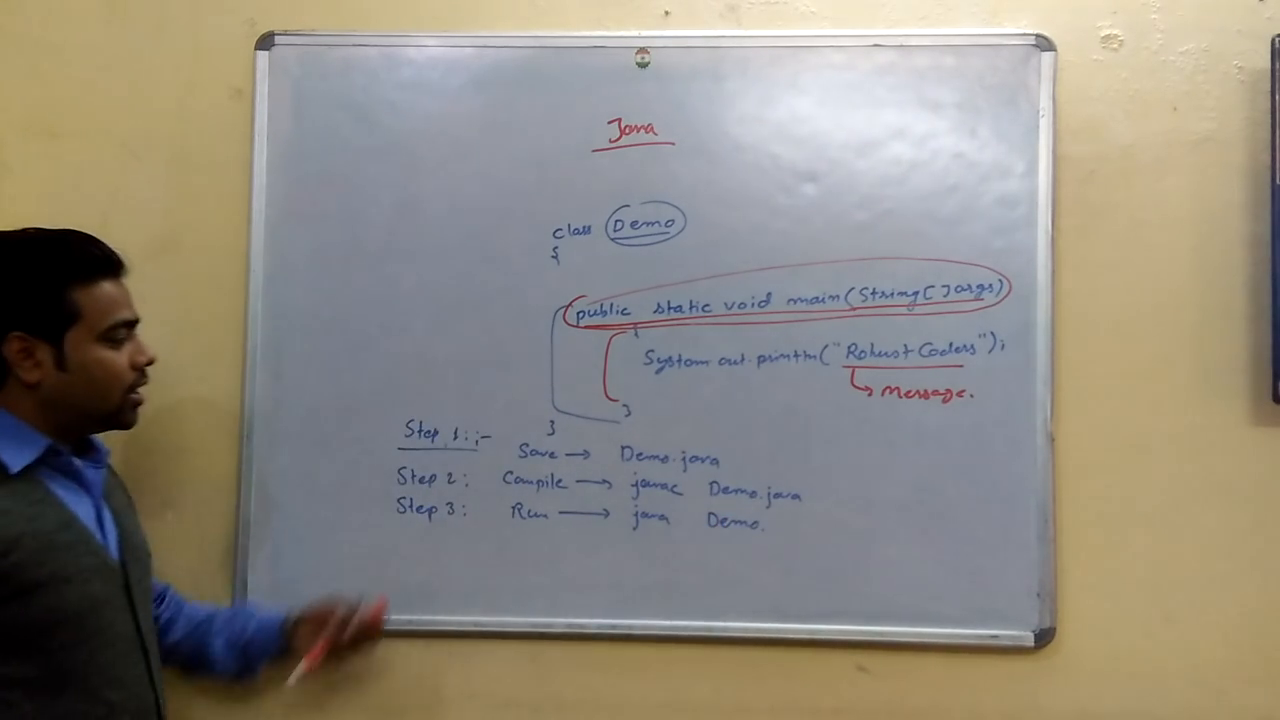 Java
class Demo
{
public static void main(String[] args)
{
System.out.println("Robust Coders");
→ Message.
}
}
Step 1:;-
Save → Demo.java
Step 2: Compile → javac Demo.java
Step 3: Run → java Demo.